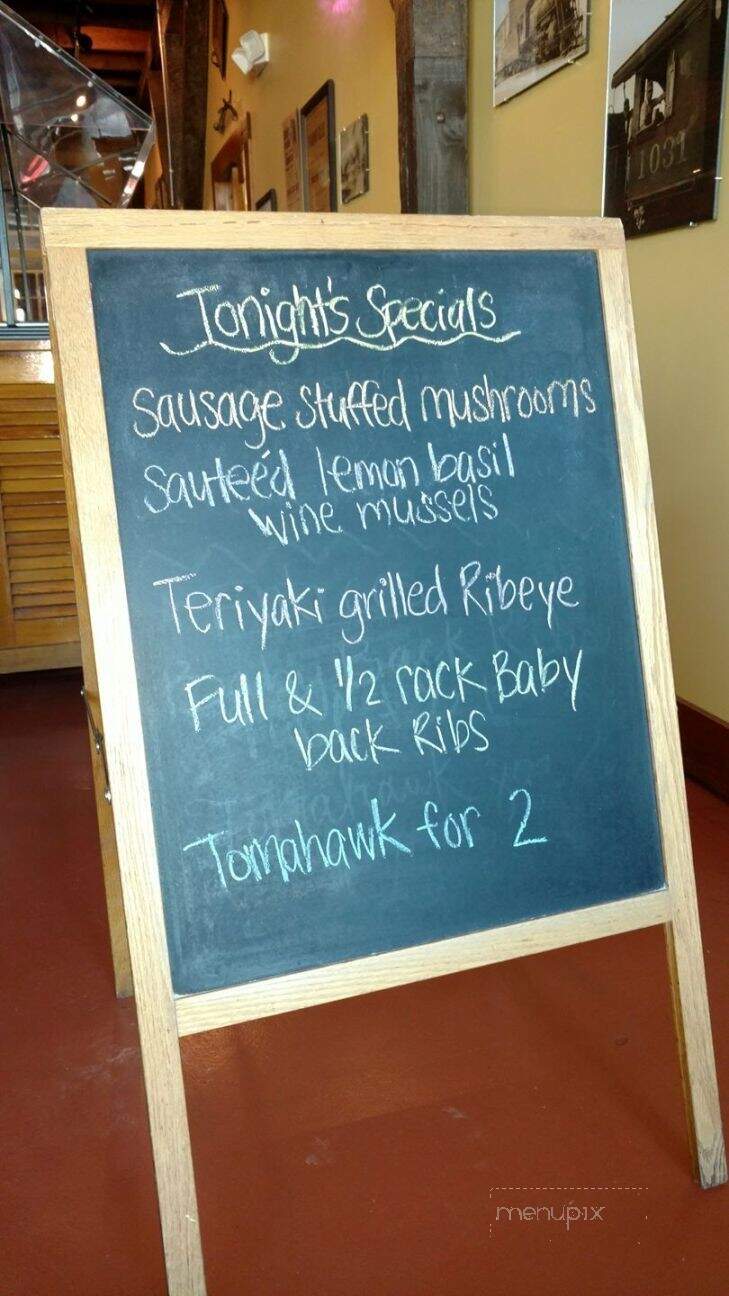 Tonight's Specials
Sausage stuffed mushrooms
Sauteéd lemon basil
wine mussels
Teriyaki grilled Ribeye
Full & 1/2 rack Baby
back Ribs
Tomahawk for 2
1031
menupix